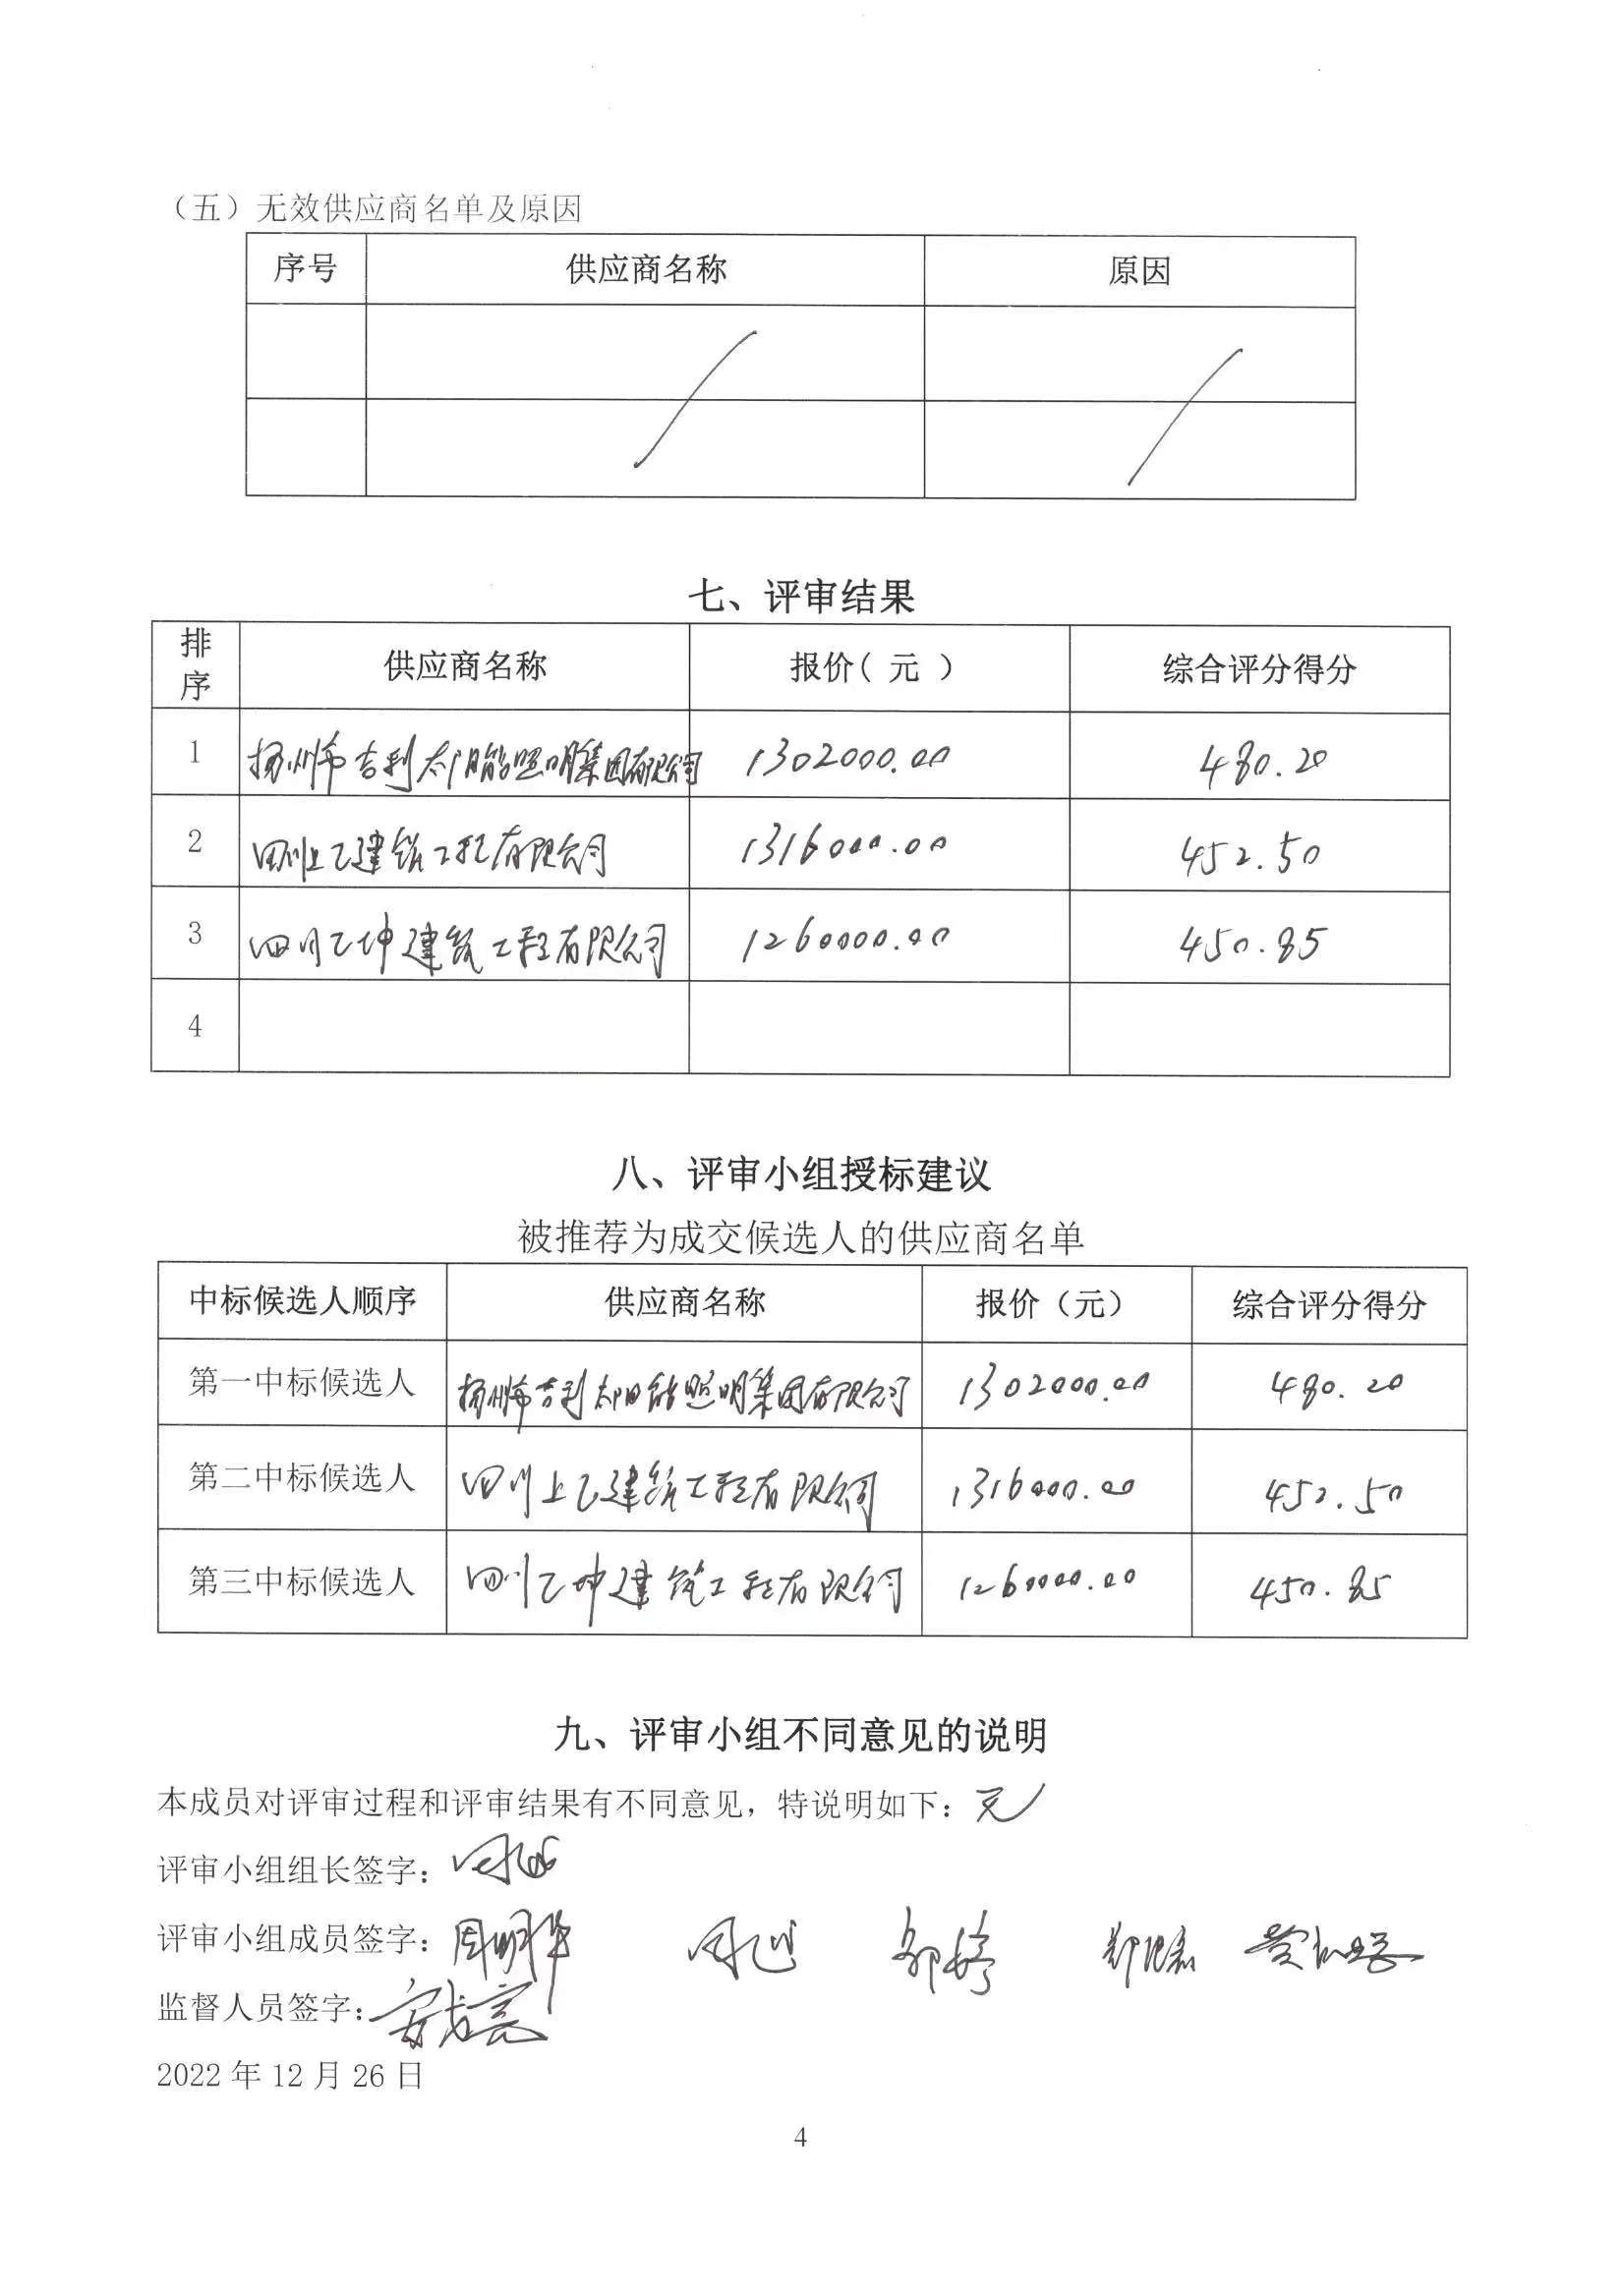 （五）无效供应商名单及原因
序号 供应商名称 原因
七、评审结果
排序 供应商名称 报价( 元 ) 综合评分得分
1 扬州市吉利太阳能照明集团有限公司 1302000.00 480.20
2 四川上乙建筑工程有限公司 1316000.00 452.50
3 四川乙坤建筑工程有限公司 1260000.00 450.85
4
八、评审小组授标建议
被推荐为成交候选人的供应商名单
中标候选人顺序 供应商名称 报价（元） 综合评分得分
第一中标候选人 扬州市吉利太阳能照明集团有限公司 1302000.00 480.20
第二中标候选人 四川上乙建筑工程有限公司 1316000.00 452.50
第三中标候选人 四川乙坤建筑工程有限公司 1260000.00 450.85
九、评审小组不同意见的说明
本成员对评审过程和评审结果有不同意见，特说明如下：无
评审小组组长签字：
评审小组成员签字：周明华
监督人员签字：
2022 年 12 月 26 日
4